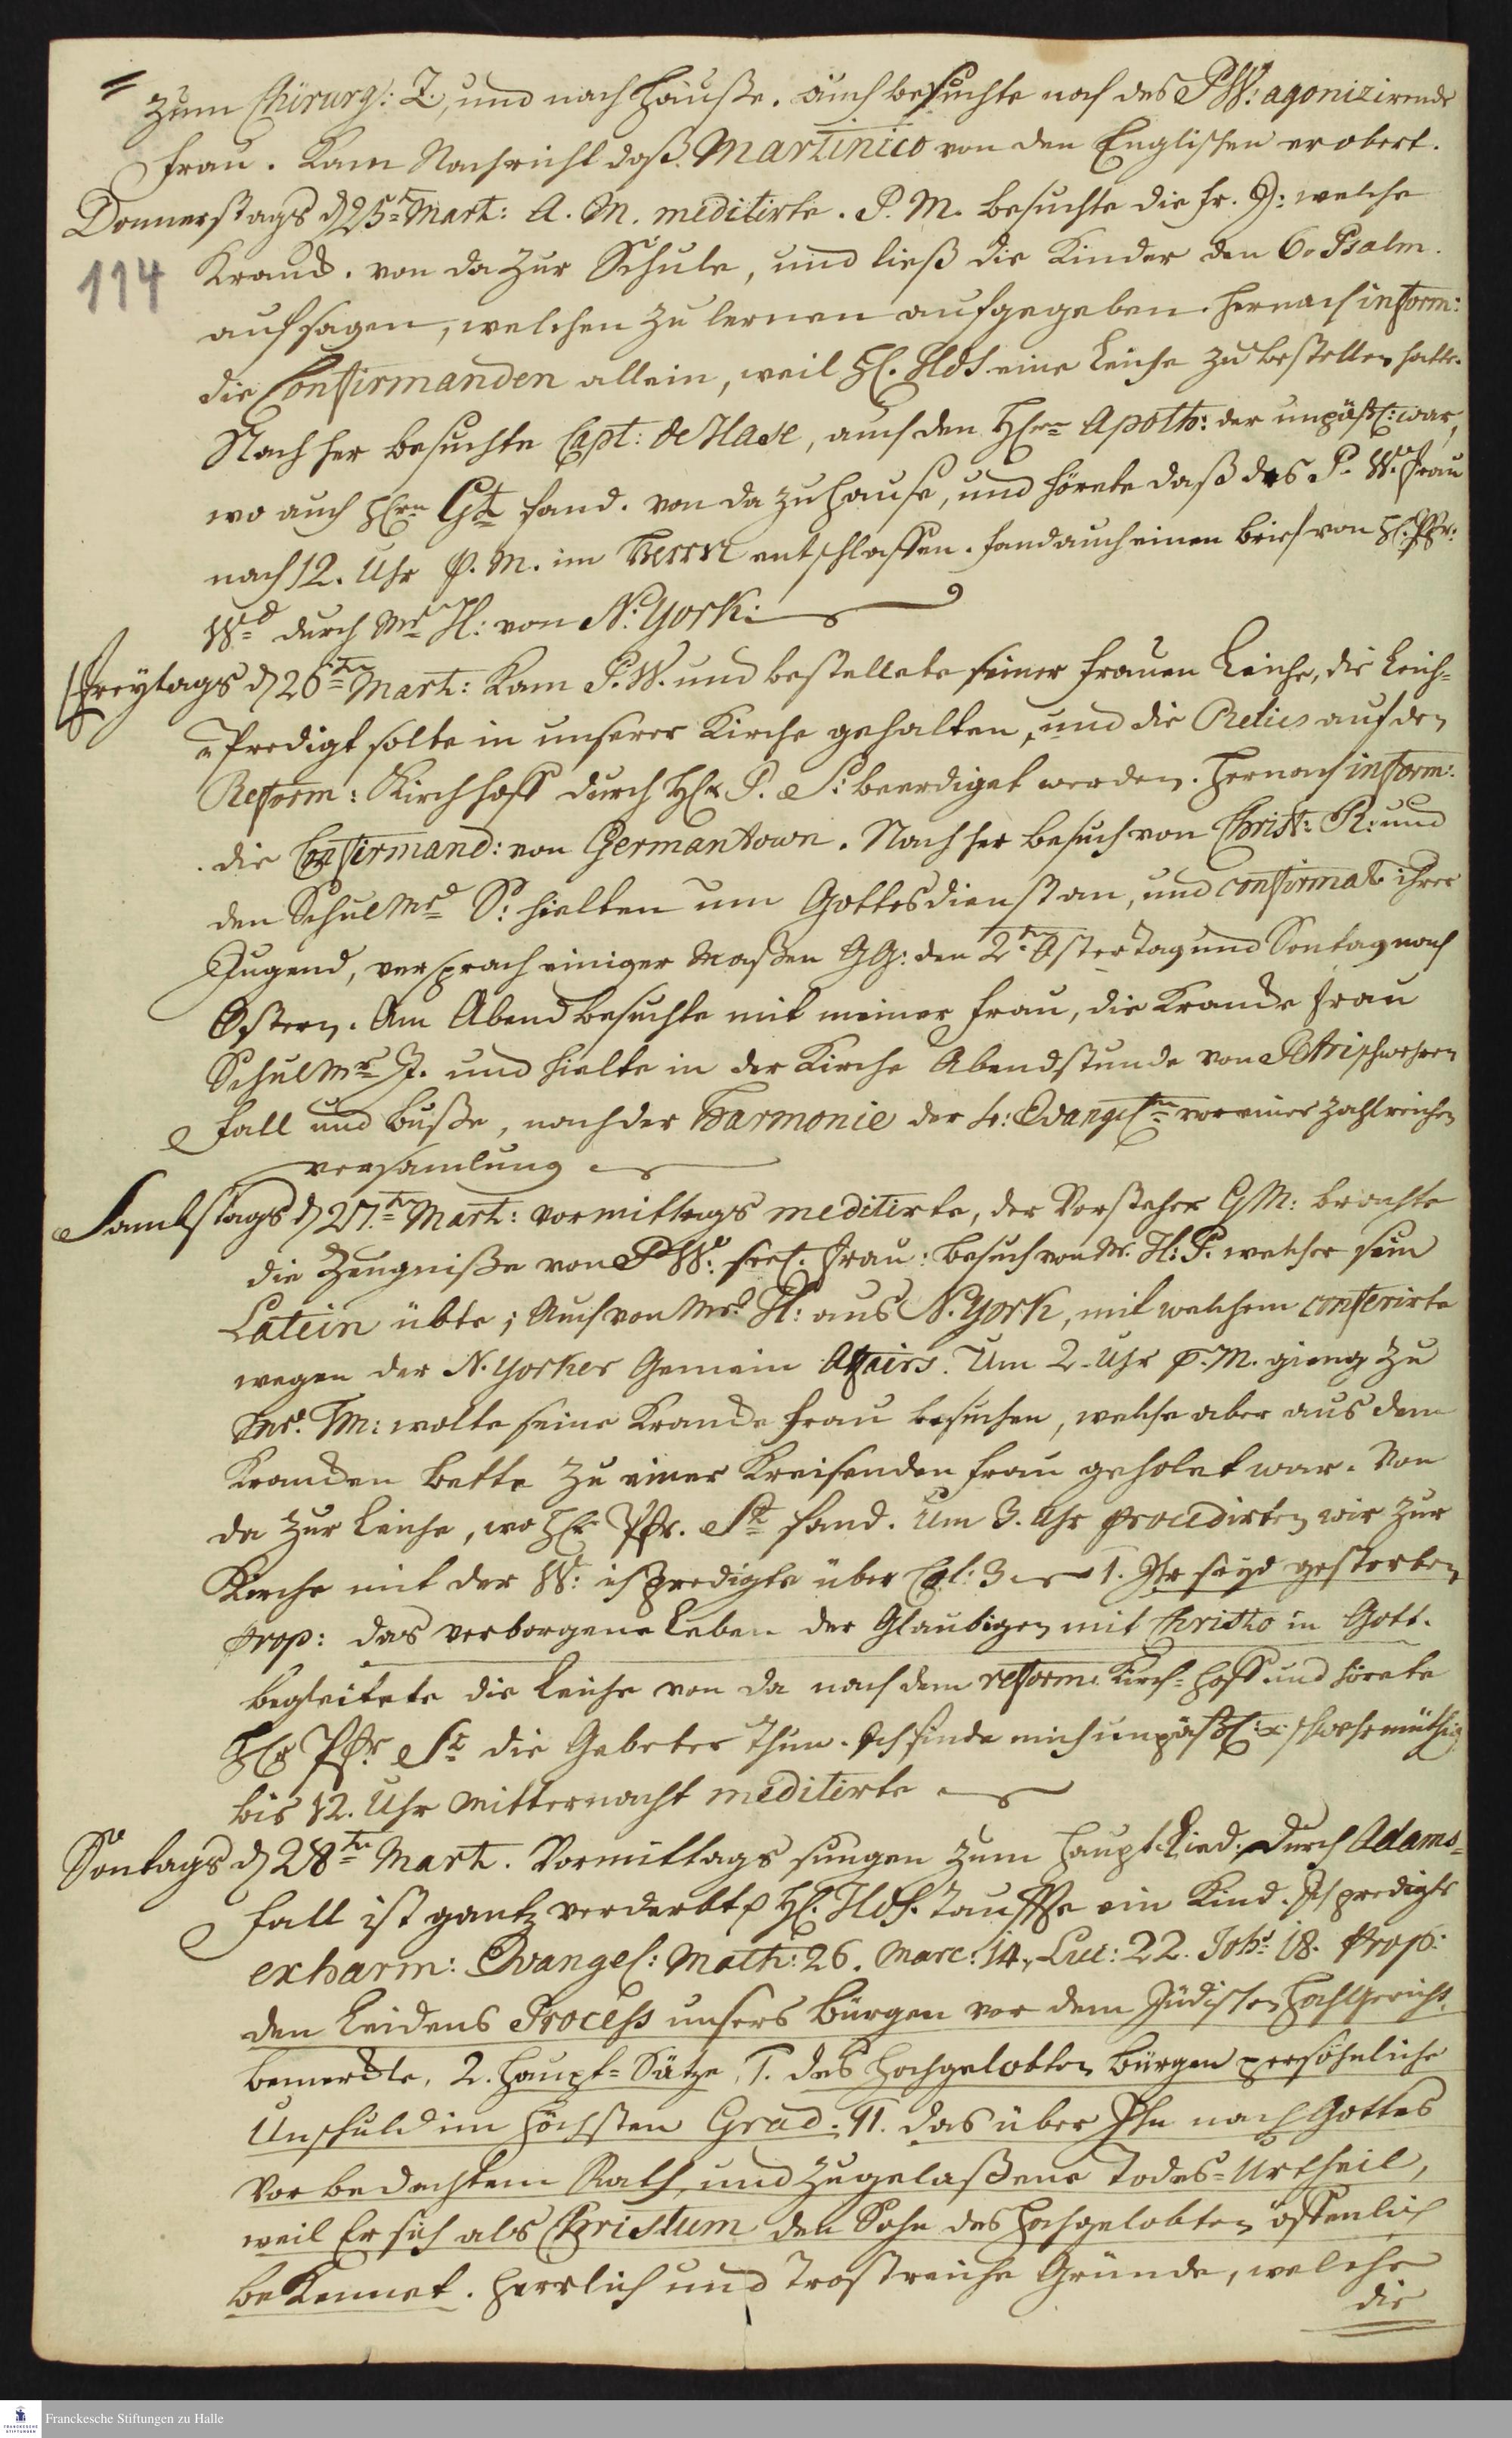 zum Chirurg: Z., und nach Hauße. auch besuchte noch des P W: agonizirende
Frau. Kam Nachricht daß Martinico von den Englischen erobert.
Donnerstags d 25n Mart: A. M. meditirte. P. M. besuchte die Fr. G: welche
114
Kranck. von da zur Schule, und ließ die Kinder den 6. Psalm.
aufsagen, welchen zu lernen aufgegeben. hernach inform:
die Confirmanden allein, weil H. Hds. eine Leiche zu bestellen hatte.
Nachher besuchte Capt: de Hase, auch den Hrn Apoth: der unpäßl: war,
wo auch Hrn Gk fand. von da zu Hause, und hörete daß des P. W. Frau
nach 12. Uhr P. M. im HERRN entschlaffen. fand auch einen Brief von H. Pfr:
Wd durch Mr H: von N. York:
Freytags d 26tn Mart: Kam P. W. und bestellete seiner Frauen Leiche, die Leich=
=Predigt solte in unserer Kirche gehalten, und die Relics auf den
Reform: Kirchhoff durch Hr P. S: beerdiget werden. Hernach inform:
die Confirmand: von Germantown. Nachher besuch von Christ: R: und
den SchulMr S: hielten um Gottesdienst an, und confirmat: ihrer
Jugend, versprach einiger Maßen GG: den 2tn OsterTag und Sontag nach
Ostern. Am Abend besuchte mit meiner Frau, die Krancke Frau
SchulMr J. und hielte in der Kirche Abendstunde von Petri schwehren
Fall und Buße, nach der Harmonie der 4: Evangeln vor einer zahlreichen
versamlung
Sambstags d 27tn Mart: vormittags meditirte, der Vorsteher GM: brachte
die Zeugniße von P W: seel. Frau: besuch von Mr. H: P. welcher sein
Latein übte; Auch von Mr. H: aus N. York, mit welchem conferirte
wegen der N. Yorker Gemein Affairs. Um 2. Uhr P. M. gieng zu
Mr. TM: wolte seine Krancke Frau besuchen, welche aber aus dem
Krancken Bette zu einer Kreisenden Frau geholet war. Von
da zur Leiche, wo Hr Pfr. St fand. Um 3. Uhr procedirten wir zur
Kirche mit der W: ich predigte über Col: 3 1. Ihr seyd gestorben
prop: das verborgene Leben der Glaubigen mit Christo in Gott.
begleitete die Leiche von da nach dem reform: Kirch=hoff und hörete
Hr Pfr. St die Gebeter thun. Ich finde mich unpäßl: schwehrmüthig
bis 12. Uhr Mitternacht meditirte
Sontags d 28tn Mart. Vormittags sungen zum Haupt Lied: Durch Adams=
Fall ist gantz verderbt p H. Hds. Tauffte ein Kind. Ich predigte
ex harm: Evangel: Math: 26. Marc: 14. Luc: 22. Joh: 18. prop:
den Leidens Process unsers Bürgen vor dem Jüdischen Hohgericht.
bemerckte, 2. Haupt=Sätze. I. des Hochgelobten Bürgen persöhnliche
Unschuld im höchsten Grad. II. das über Ihn nach Gottes
Vorbedachtem Rath, und zugelaßene Todes=Urtheil,
weil Er sich als Christum den Sohn des Hochgelobten öffenlich
beKennet. Herrlich und trostreiche Gründe, welche
die
Franckesche Stiftungen zu Halle